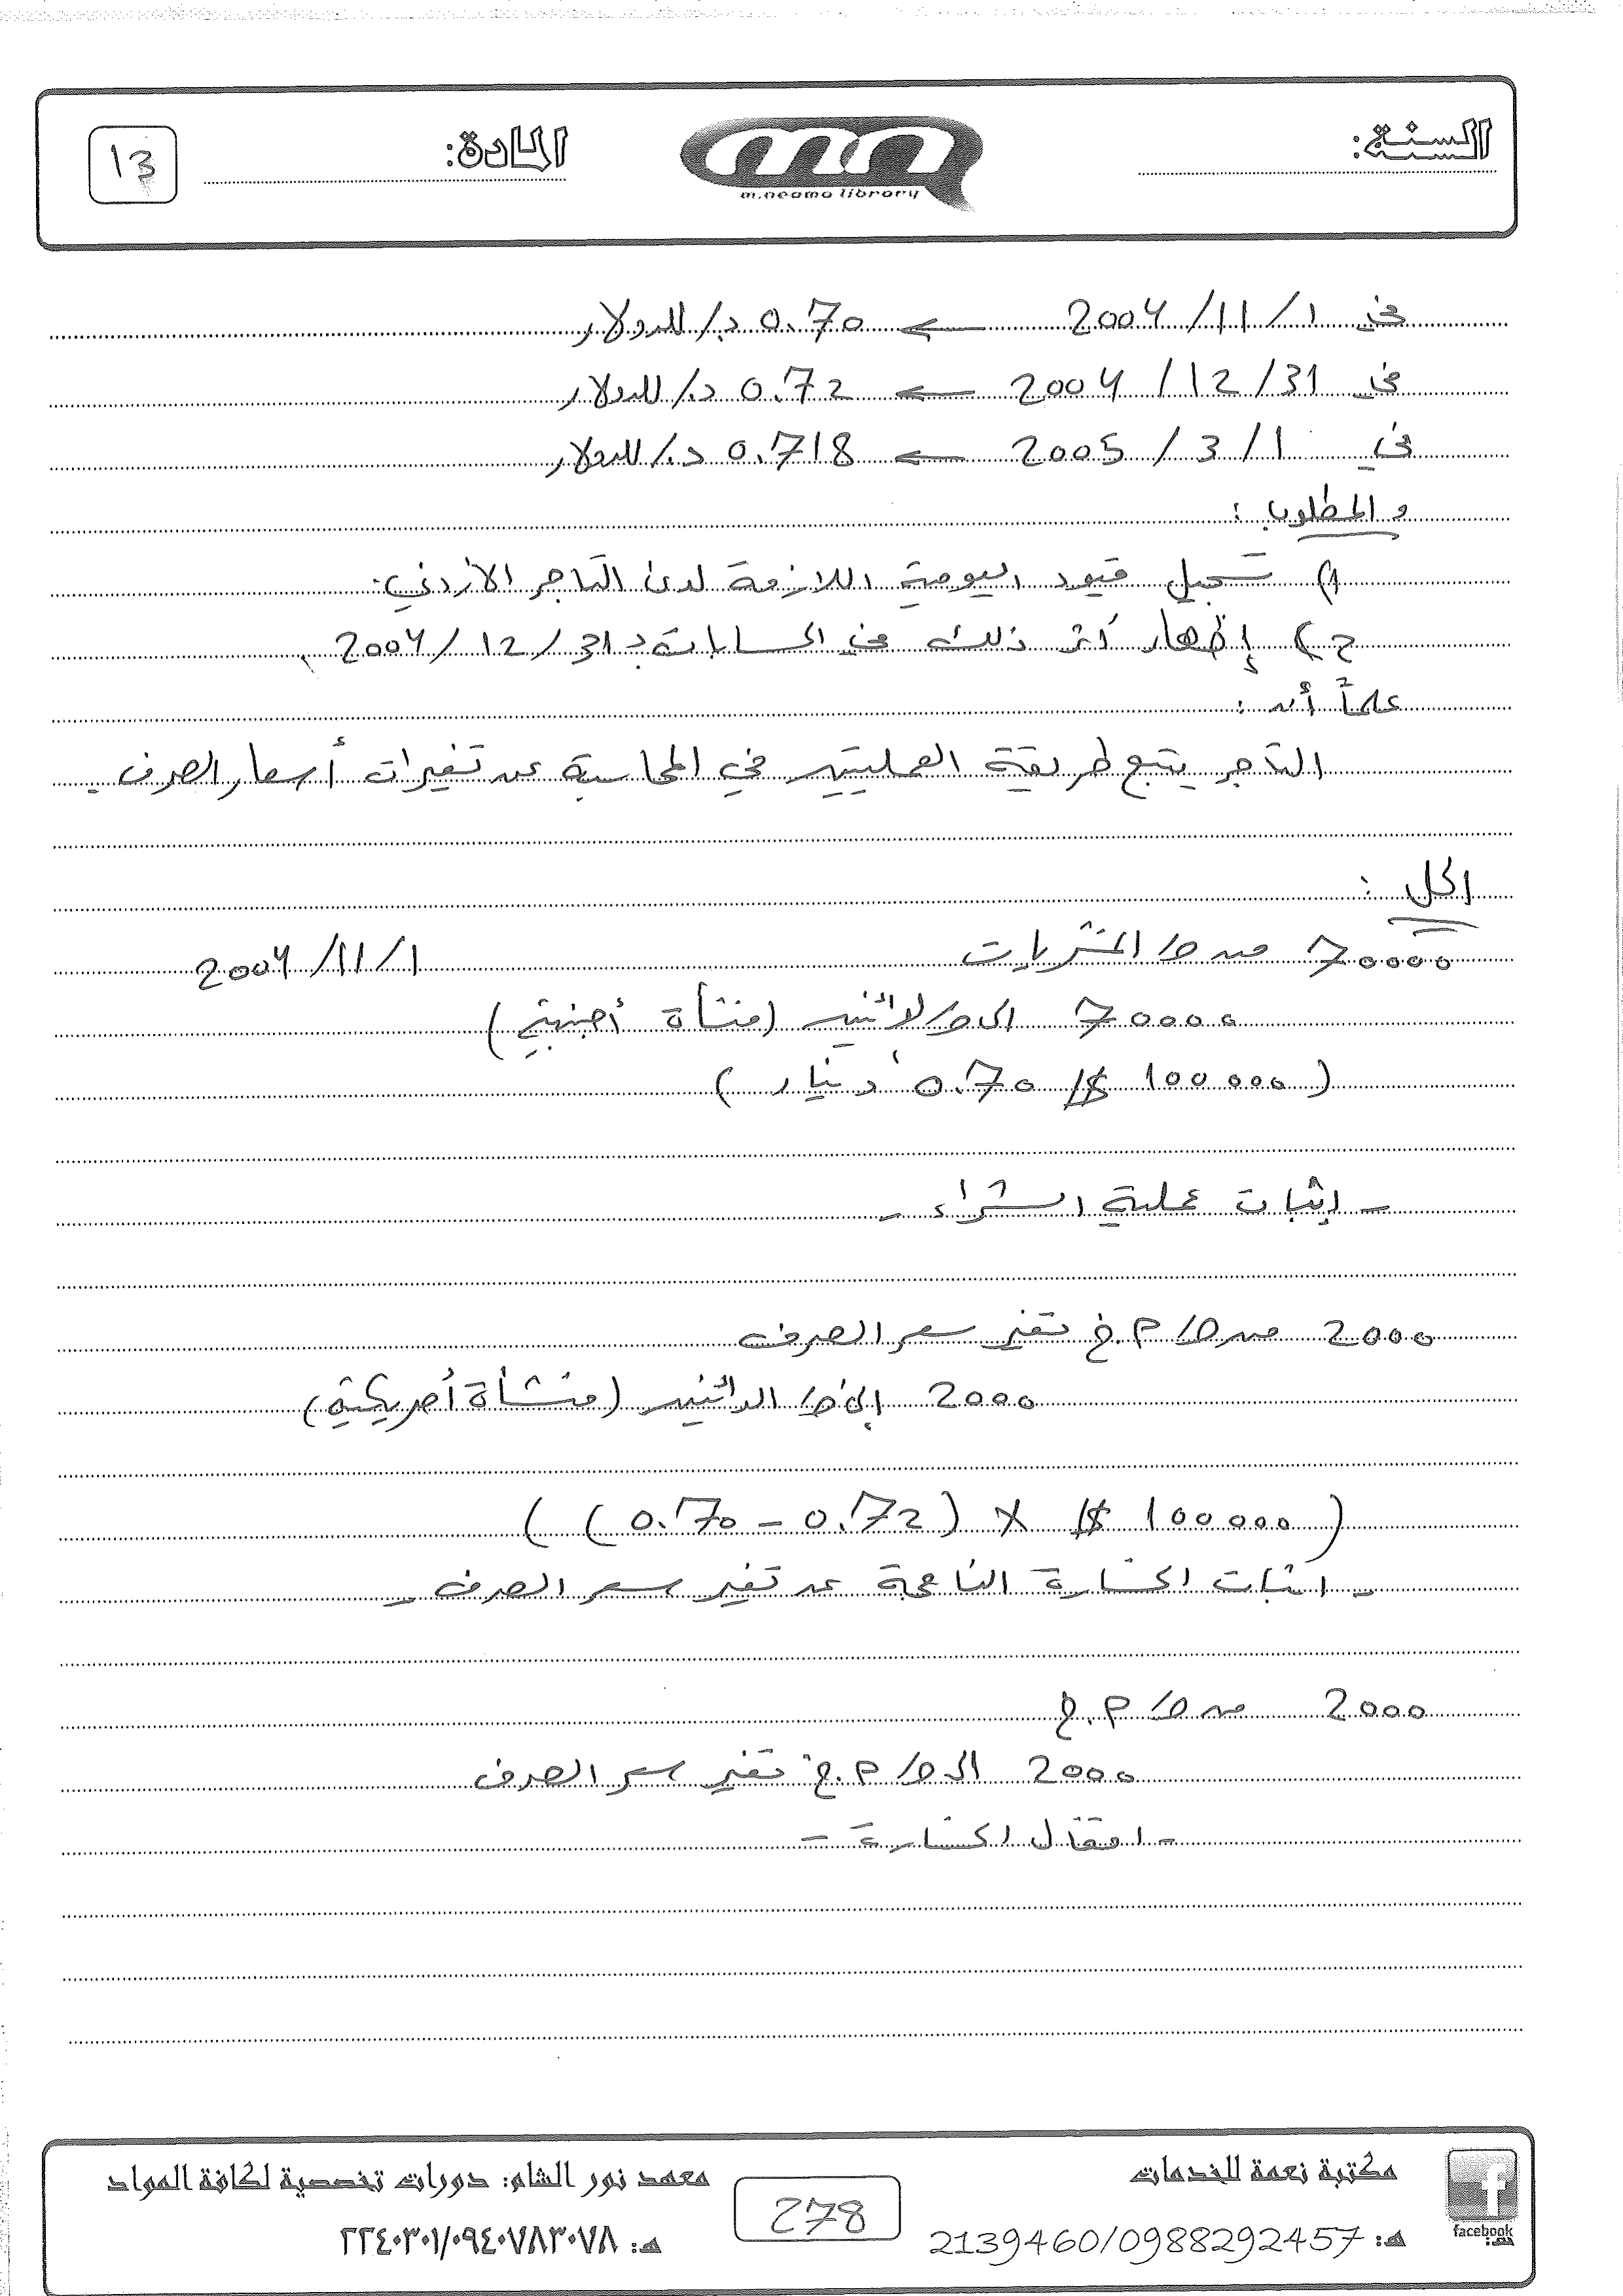 السنة:
m.neama library
المادة:
13
في 1/11/2004 ← 0.70 د./للدولار
في 31/12/2004 ← 0.72 د./للدولار
في 1/3/2005 ← 0.718 د./للدولار
والمطلوب:
1) تسجيل قيود اليومية اللازمة لدى التاجر الأردني.
ح) إظهار أثر ذلك في الحسابات بـ 31/12/2004.
علماً أنه:
التاجر يتبع طريقة العمليتين في المحاسبة عن تغيرات أسعار الصرف.
الحل:
70000 من ح/ المشتريات 1/11/2004
70000 الى ح/ الدائنين (منشأة أجنبية)
(100000 $/ 0.70 دينار)
- إثبات عملية الشراء -
2000 من ح/ م.خ تغير سعر الصرف
2000 إلى ح/ الدائنين (منشأة أمريكية)
(100000 $ × (0.72 - 0.70))
- اثبات الخسارة الناتجة عن تغير سعر الصرف -
2000 من ح/ م.خ
2000 الى ح/ م.خ تغير سعر الصرف
- اقفال الخسارة -
مكتبة نعمة للخدمات
هـ: 2139460/0988292457
facebook
278
معهد نور الشام: دورات تخصصية لكافة المواد
هـ: ٢٢٤٠٣٠١/٠٩٤٠٧٨٣٠٧٨